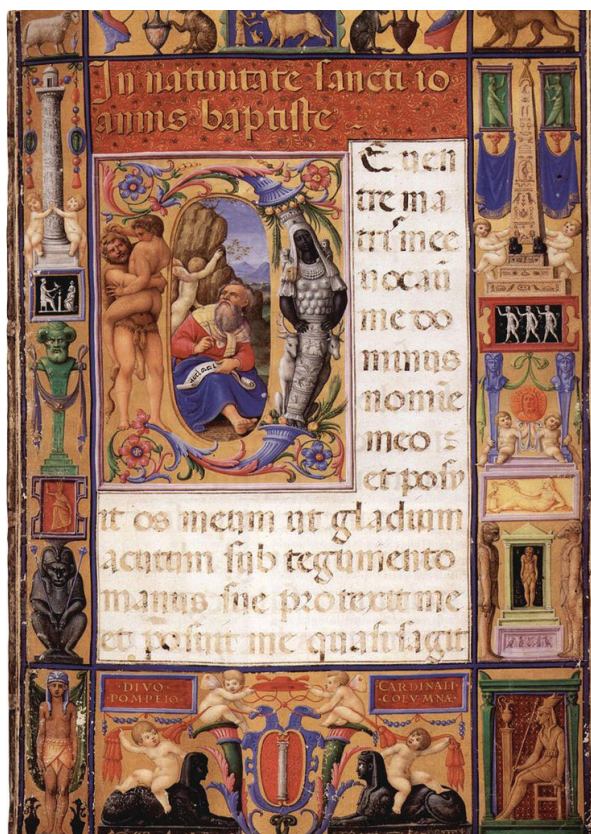 In nativitate sancti io
annis baptiste
D E ven
tre ma
tris mee
vocavi
me do
minus
nomie
meo
et posu
it os meum ut gladium
acutum sub tegumento
manus sue protexit me
et posuit me quasi sagit
·DIVO·
·POMPEIO·
CARDINALI
·COLVMNA·